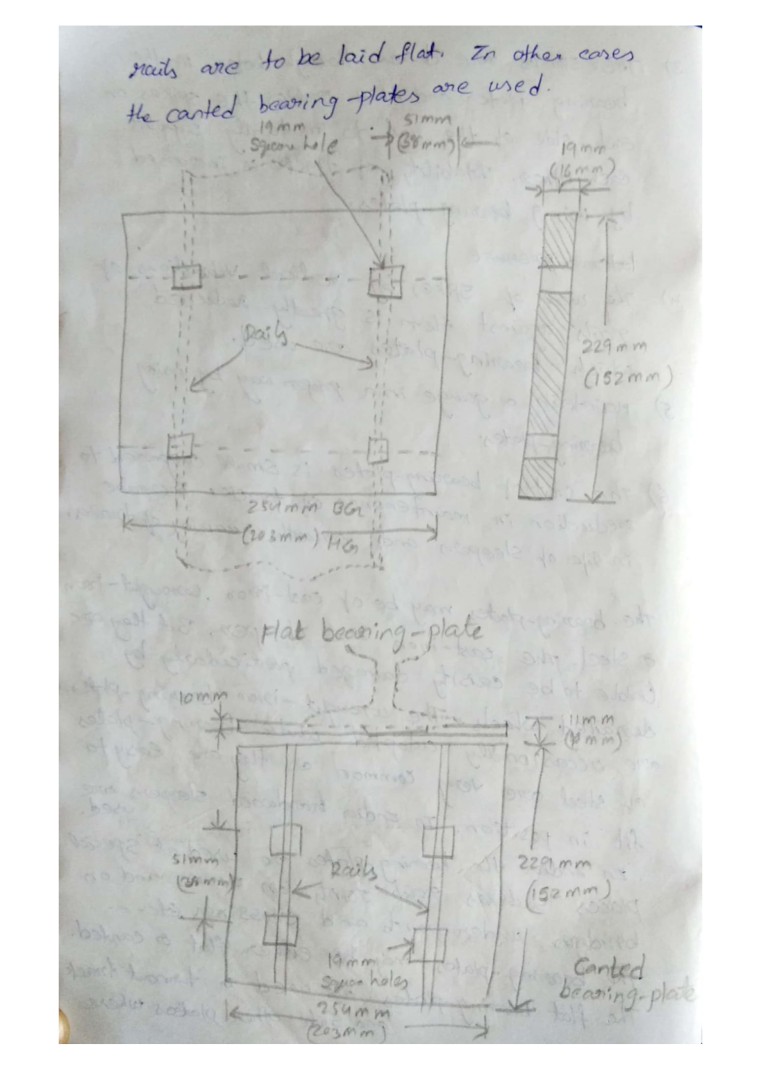 rails are to be laid flat. In other cases
the canted bearing-plates are used.
19mm
Square hole
51mm
(38mm)
19mm
(16mm)
Rails
229mm
(152mm)
254mm BG
(203mm) MG
Flat bearing-plate
10mm
11mm
51mm
Rails
229mm
(152mm)
19mm
Square holes
Canted
bearing-plate
254mm
(203mm)